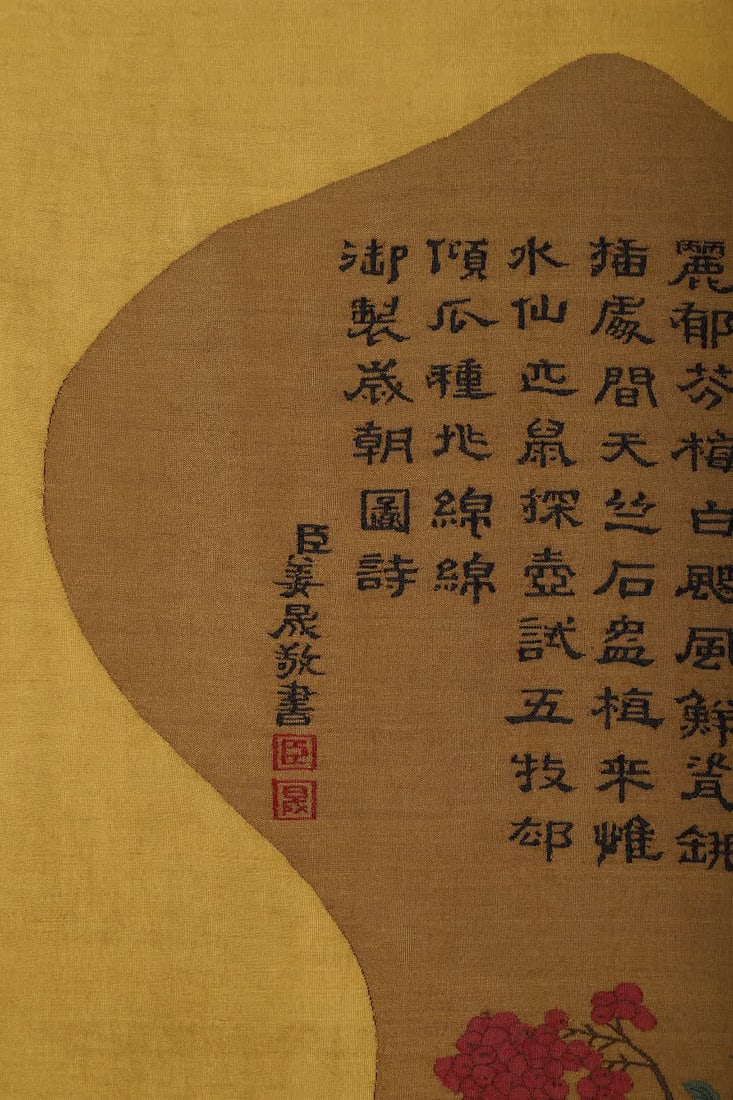 麗郁芬梅白風鮮瓷鉼
插處間天竺石盎植来惟
水仙匹鼠探壺試五技卻
傾瓜種兆綿綿
御製歲朝圖詩
臣姜晟敬書
臣
晟